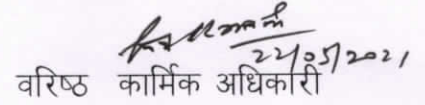 22/05/2021
वरिष्ठ कार्मिक अधिकारी